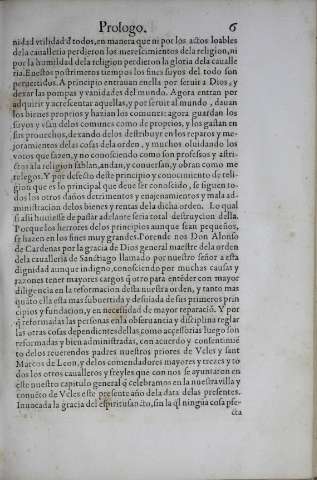 Prologo. 6
nidad vtilidad d̃ todos, en manera que ni por los actos loables
dela caualleria perdieron los merescimientos dela religion, ni
por la humildad dela religion perdieron la gloria dela caualle
ria. Enestos postrimeros tiempos los fines suyos del todo son
peruertidos. A principio entrauan enella por seruir a Dios, y
dexar las pompas y vanidades del mundo. Agora entran por
adquirir y acrescentar aquellas, y por seruir al mundo, dauan
los bienes proprios y hazian los comunes: agora guardan los
suyos y vsan delos comunes como de proprios, y los gastan en
sus prouechos, dexando delos destribuyr en los reparos y me-
joramientos delas cosas dela orden, y muchos oluidando los
votos que fazen, y no conosciendo como son professos y astri-
ctos ala religion fablan, andan, y conuersan, y obran como me
relegos. Y por defecto deste principio y conocimiento de reli-
gion que es lo principal que deue ser conoscido, se siguen to-
dos los otros daños detrimentos y enajenamientos y mala ad-
ministracion delos bienes y rentas dela dicha orden. Lo qual
si assi huuiesse de passar adelante seria total destruycion della.
Porque los herrores delos principios aunque sean pequeños,
se hazen en los fines muy grandes. Porende nos Don Alonso
de Cardenas por la gracia de Dios general maestre dela orden
dela caualleria de Sanctiago llamado por nuestro señor a esta
dignidad aunque indigno, conosciendo por muchas causas y
razones tener mayores cargos q̃ otro para enteder con mayor
diligencia en la reformacion desta nuestra orden, y tanto mas
quãto ella esta mas subuertida y desuiada de sus primeros prin
cipios y fundacion, y en necesidad de mayor reparació. Y por
q̃ reformadas las personas en la obseruancia y disciplina reglar
las otras cosas dependientes dellas como accessorias luego son
reformadas y bien administradas, con acuerdo y consentimiẽ
to delos reuerendos padres nuestros priores de Vcles y sant
Marcos de Leon, y delos comendadores mayores y trezes y to
dos los otros caualleros y freyles que con nos se ayuntaron en
este nuestro capitulo general q̃ celebramos en la nuestra villa y
conuẽto de Vcles este presente año dela data delas presentes.
Inuocada la gracia del espiritusancto, sin la q̃l ningũa cosa pfe-
cta